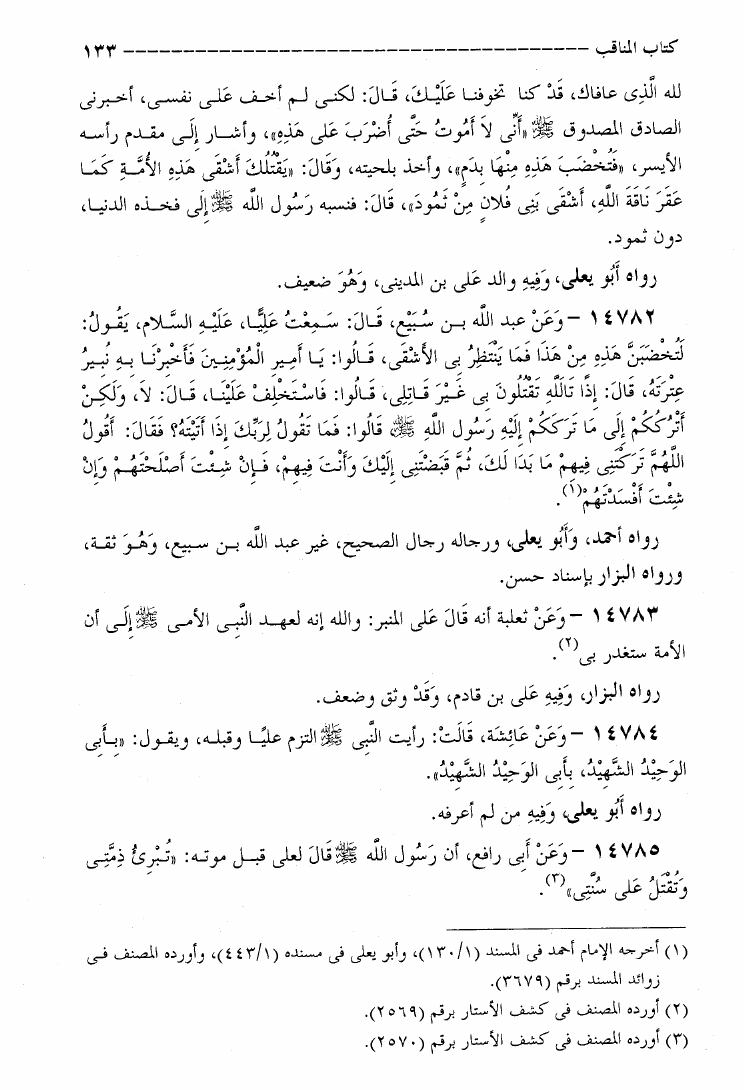 كتاب المناقب ---------------------------------------- ١٣٣
لله الَّذِى عافاك، قَدْ كنا تخوفنا عَلَيْكَ، قَالَ: لكنى لم أخف عَلى نفسى، أخبرنى
الصادق المصدوق ﷺ «أَنِّى لاَ أَمُوتُ حَتَّى أُضْرَبَ عَلى هَذِهِ»، وأشار إِلَى مقدم رأسه
الأيسر، «فَتُخْضَبَ هَذِهِ مِنْهَا بِدَمٍ»، وأخذ بلحيته، وَقَالَ: «يَقْتُلُكَ أَشْقَى هَذِهِ الأُمَّةِ كَمَا
عَقَرَ نَاقَةَ اللَّهِ، أَشْقَى بَنِى فُلَانٍ مِنْ ثَمُودَ»، قَالَ: فنسبه رَسُول اللَّه ﷺ إِلى فخذه الدنيا،
دون ثمود.
رواه أَبُو يعلى، وَفِيهِ والد عَلى بن المدينى، وَهُوَ ضعيف.
١٤٧٨٢ – وَعَنْ عبد اللَّه بن سُبَيْعٍ، قَالَ: سَمِعْتُ عَلِيًّا، عَلَيْهِ السَّلام، يَقُولُ:
لَتُخْضَبَنَّ هَذِهِ مِنْ هَذَا فَمَا يَنْتَظِرُ بِى الأَشْقَى، قَالُوا: يَا أَمِير الْمُؤْمِنِينَ فَأَخْبِرْنَا بِهِ نُبِيرُ
عِتْرَتَهُ، قَالَ: إِذًا تَاللَّهِ تَقْتُلُونَ بِى غَيْرَ قَاتِلِى، قَالُوا: فَاسْتَخْلِفْ عَلَيْنَا، قَالَ: لاَ، وَلَكِنْ
أَتْرُكُكُمْ إِلَى مَا تَرَكَكُمْ إِلَيْهِ رَسُول اللَّه ﷺ قَالُوا: فَمَا تَقُولُ لِرَبِّكَ إِذَا أَتَيْتَهُ؟ فَقَالَ: أَقُولُ
اللَّهُمَّ تَرَكْتَنِى فِيهِمْ مَا بَدَا لَكَ، ثُمَّ قَبَضْتَنِى إِلَيْكَ وَأَنْتَ فِيهِمْ، فَإِنْ شِئْتَ أَصْلَحْتَهُمْ وَإِنْ
شِئْتَ أَفْسَدْتَهُمْ(١).
رواه أحمد، وَأَبُو يعلى، ورجاله رجال الصحيح، غير عبد اللَّه بن سبيع، وَهُوَ ثقة،
ورواه البزار بإسناد حسن.
١٤٧٨٣ – وَعَنْ ثعلبة أنه قَالَ عَلى المنبر: والله إنه لعهد النَّبِى الأمى ﷺ إِلَى أن
الأمة ستغدر بى(٢).
رواه البزار، وَفِيهِ عَلى بن قادم، وَقَدْ وثق وضعف.
١٤٧٨٤ – وَعَنْ عَائِشَة، قَالَتْ: رأيت النَّبِى ﷺ التزم عليًا وقبله، ويقول: «بِأَبِى
الوَحِيْدُ الشَّهِيْدُ، بِأَبِى الوَحِيْدُ الشَّهِيْدُ».
رواه أَبُو يعلى، وَفِيهِ من لم أعرفه.
١٤٧٨٥ – وَعَنْ أَبِى رافع، أن رَسُول اللَّه ﷺ قَالَ لعلى قبل موته: «تُبْرِئُ ذِمَّتِى
وَتُقْتَلُ عَلى سُنَّتِى»(٣).
(١) أخرجه الإمام أحمد فى المسند (١٣٠/١)، وأبو يعلى فى مسنده (٤٤٣/١)، وأورده المصنف فى
زوائد المسند برقم (٣٦٧٩).
(٢) أورده المصنف فى كشف الأستار برقم (٢٥٦٩).
(٣) أورده المصنف فى كشف الأستار برقم (٢٥٧٠).